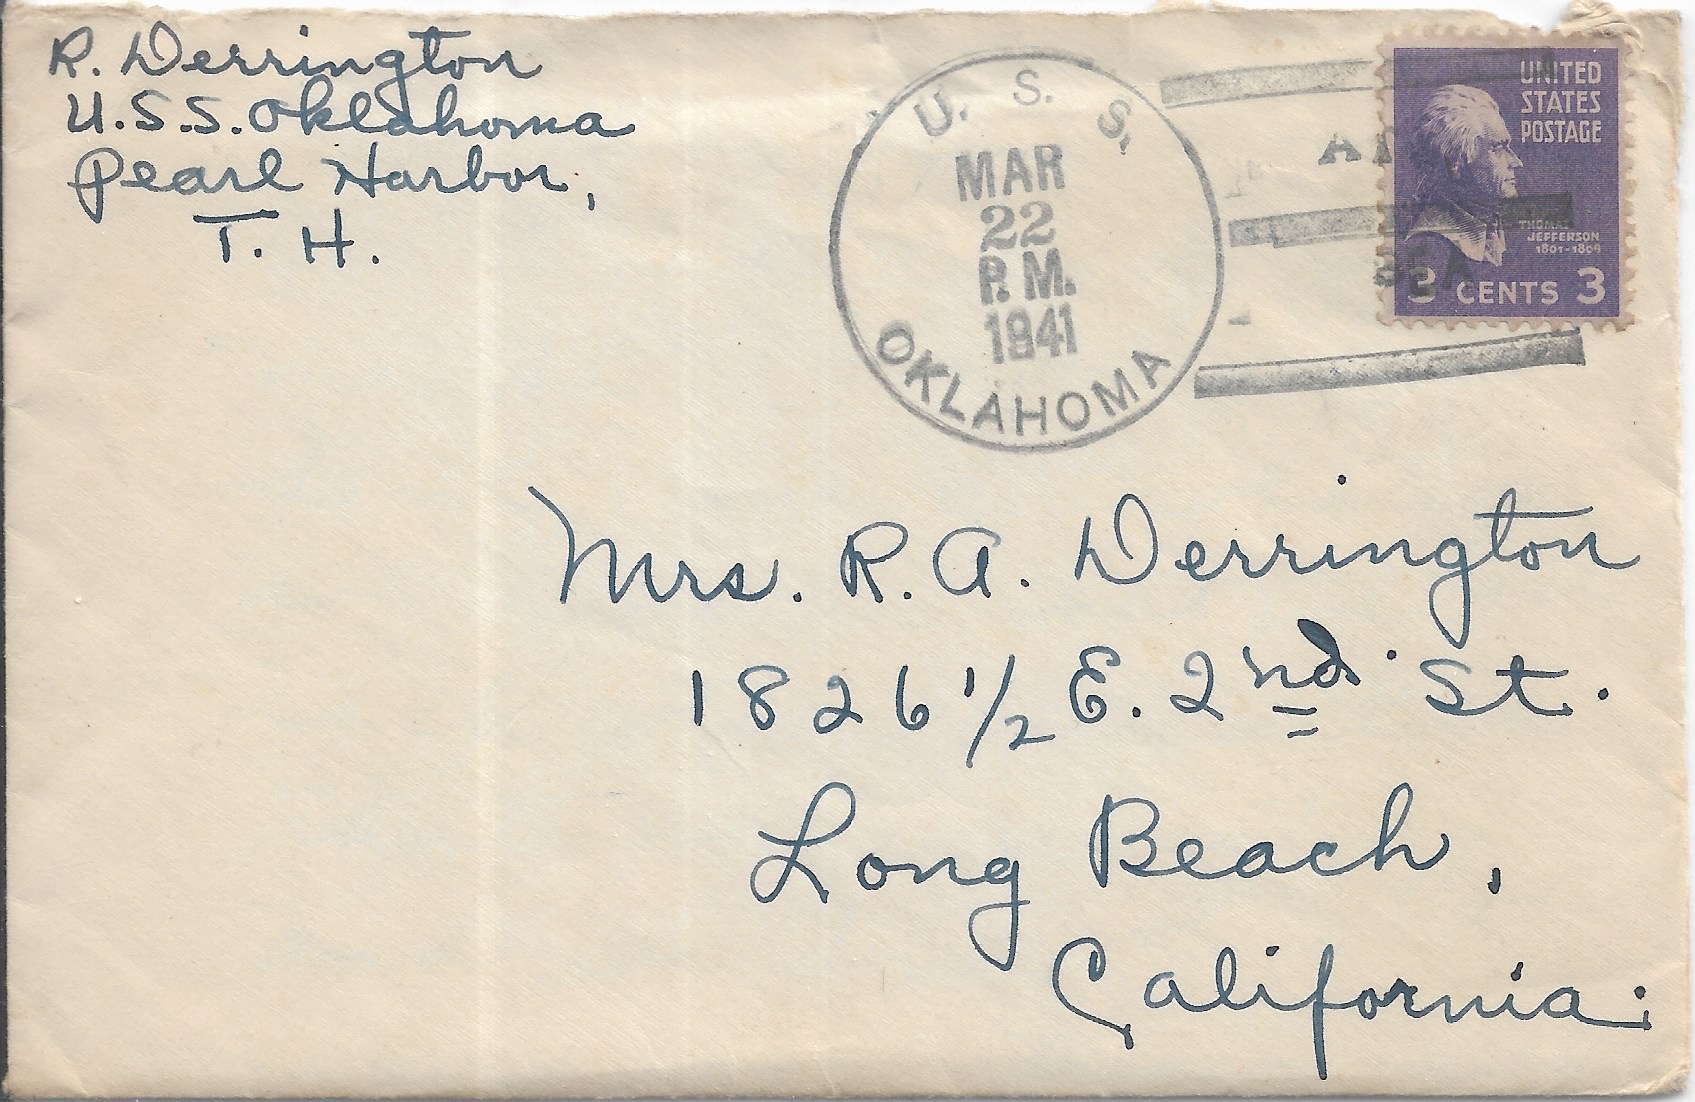 R. Derrington
U.S.S. Oklahoma
Pearl Harbor,
T. H.
U. S. S.
MAR
22
P. M.
1941
OKLAHOMA
SEA
UNITED
STATES
POSTAGE
THOMAS
JEFFERSON
1801-1809
3 CENTS 3
Mrs. R. A. Derrington
1826 1/2 E. 2nd. St.
Long Beach,
California.